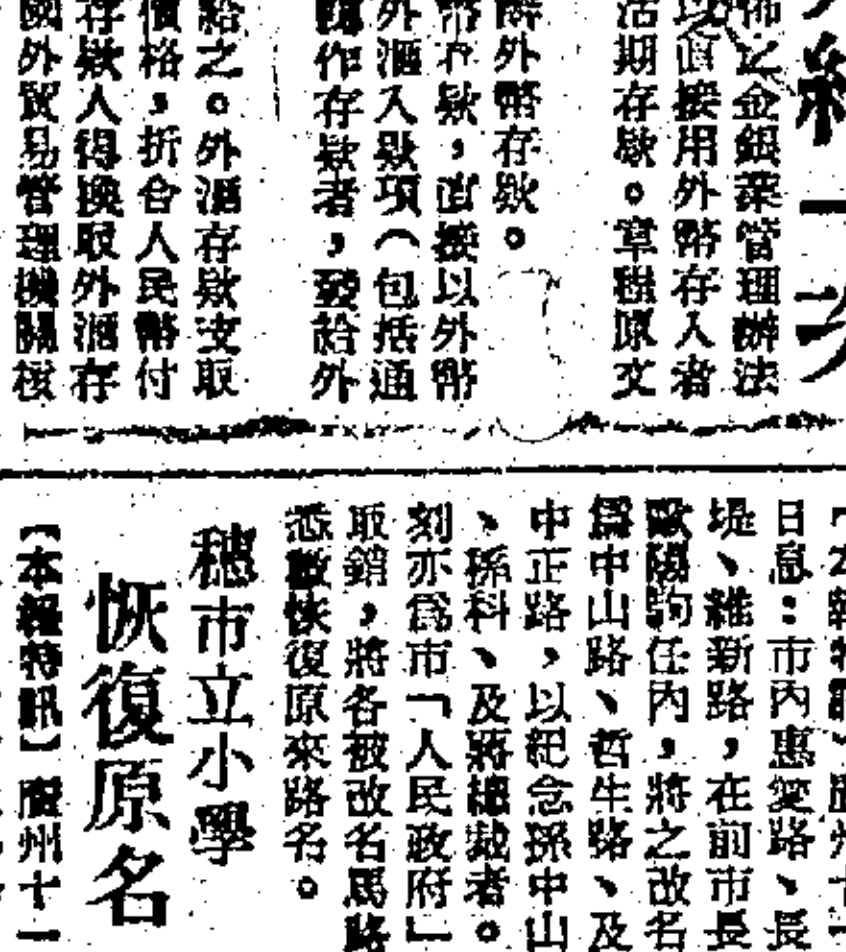 一次
佈之金銀業管理辦法
以直接用外幣存入者
活期存欵。章程原文
外幣存欵。
幣存欵,直接以外幣
外滙入欵項(包括通
作存欵者,發給外
給之。外滙存欵支取
價格,折合人民幣付
存欵人得換取外滙存
國外貿易管理機關核
日息:市內惠愛路、長
堤、維新路,在前市長
歐陽駒任內,將之改名
爲中山路、哲生路、及
中正路,以紀念孫中山
、孫科、及蔣總裁者。
刻亦爲市「人民政府」
取銷,將各被改名馬路
悉數恢復原來路名。
穗市立小學
恢復原名
【本報特訊】廣州十一